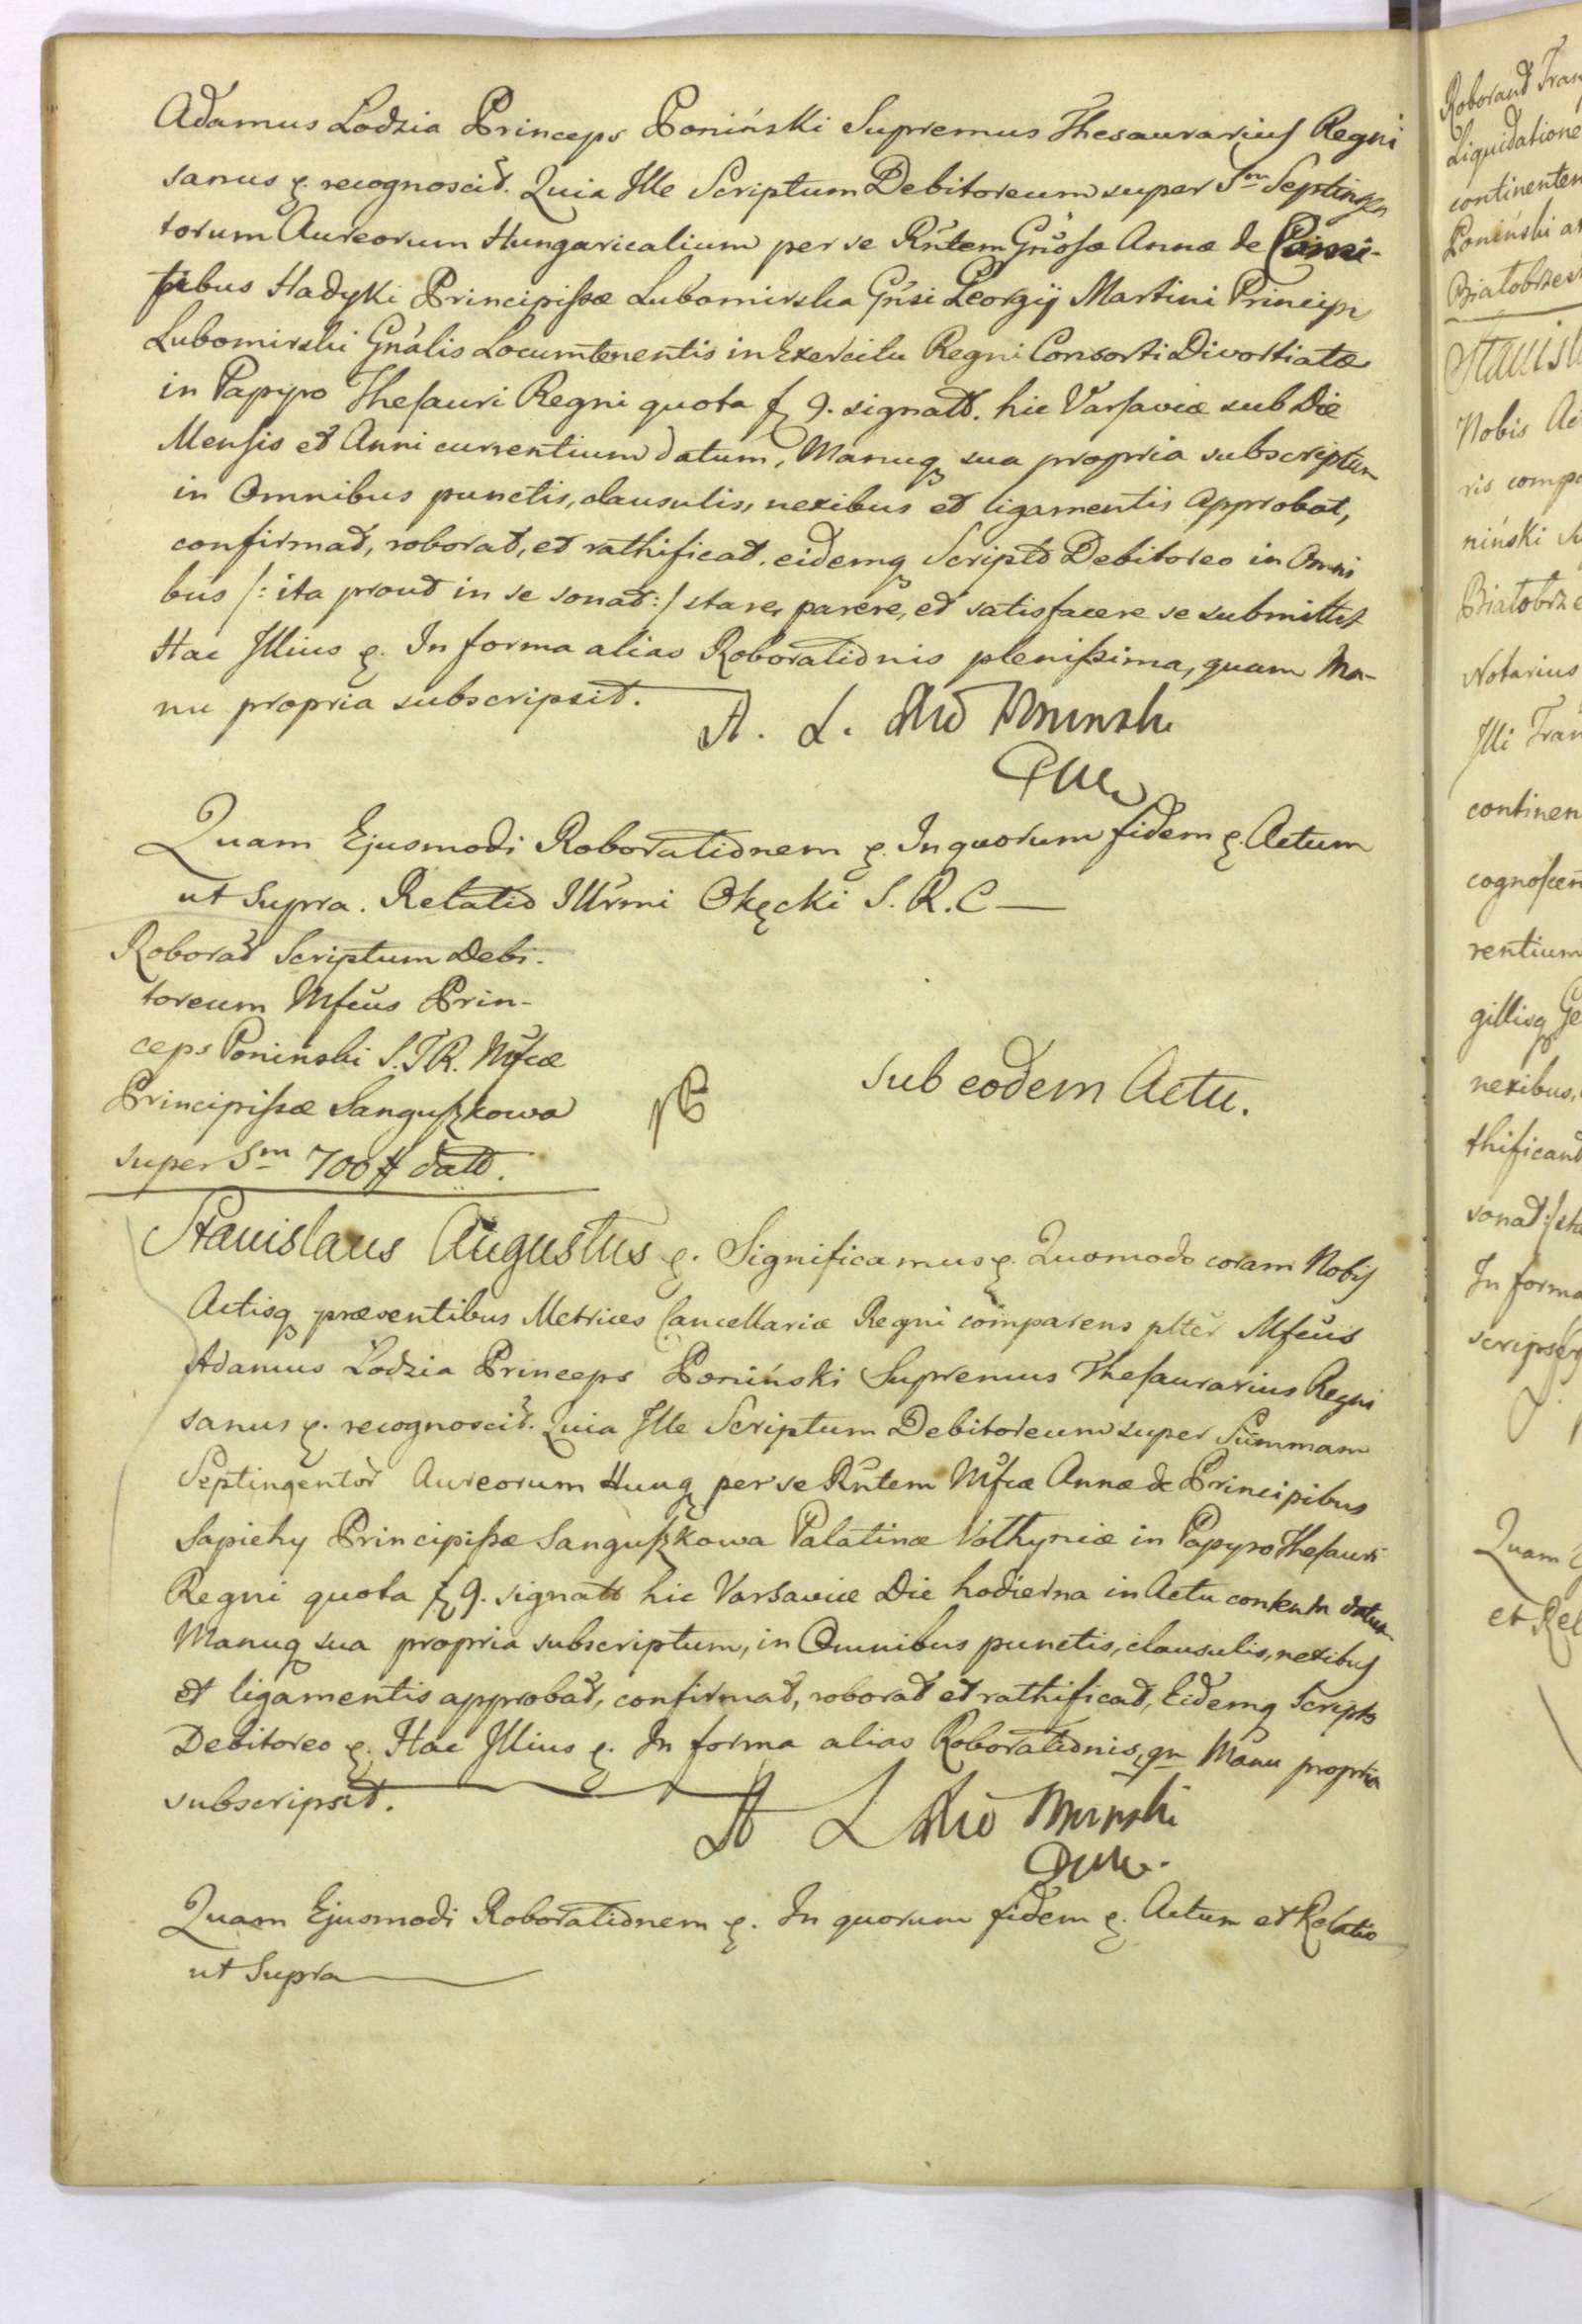 Adamus Lodzia Princeps Poniński Supremus Thesaurarius Regni
sanus &. recognoscit. Quia Ille Scriptum Debitoreum super Sm Septingen
torum Aureorum Hungaricalium per se Rñtem Gñosæ Annæ de Comi-
tibus Hadyki Principissæ Lubomirska Gñsi Georgij Martini Principi
Lubomirski Gñalis Locumtenentis in Exercitu Regni Consorti Divortiatæ
in Papyro Thesauri Regni quota f 9. signatt. hic Varsaviæ sub Die
Mensis et Anni currentium datum, Manuq sua propria subscriptum
in Omnibus punctis, clausulis, nexibus et ligamentis Approbat,
confirmat, roborat, et rathificat, eidemq Scripto Debitoreo in Omni
bus /: ita prout in se sonat :/ stare, parere, et satisfacere se submittit
Hac Illius &. In forma alias Roborationis plenissima, quam Ma-
nu propria subscripsit.
A. L. Poninski
Quam Ejusmodi Roborationem &. In quorum fidem &. Actum
ut Supra. Relatio Illrmi Okęcki S. R. C
Roborat Scriptum Debi-
toreum Mfcus Prin-
ceps Poninski S. T. R. Mfcæ
Principissæ Sanguszkowa
super Sm 700 # datt.
Sub eodem Actu.
Stanislaus Augustus &. Significamus &. Quomodo coram Nobis
Actisq præsentibus Metrices Cancellariæ Regni comparens plter Mfcus
Adamus Lodzia Princeps Poniński Supremus Thesaurarius Regni
sanus &. recognoscit. Quia Ille Scriptum Debitoreum super Summam
Septingentor Aureorum Hung per se Rñtem Mfcæ Annæ de Principibus
Sapiehy Principissæ Sanguszkowa Palatinæ Volhyniæ in Papyro Thesauri
Regni quota f 9. signatt hic Varsaviæ Die hodierna in Actu contenta datum
Manuq sua propria subscriptum, in Omnibus punctis, clausulis, nexibus
et ligamentis approbat, confirmat, roborat et rathificat, Eidemq Scripto
Debitoreo &. Hac Illius &. In forma alias Roborationis, qn Manu propria
subscripsit.
A L Poninski
Quam Ejusmodi Roborationem &. In quorum fidem &. Actum et Relatio
ut Supra
Roborant Tran
Liquidatione
continenten
Poniński
Białobrzes
Stanisl
Nobis Ac
ris compa
niński Su
Białobrze
Notarius
Illi Tran
continen
cognoscen
rentium
gillisq Ge
nexibus,
thificant
sonat :/ sta
In forma
scripser
Quam E
et Rel